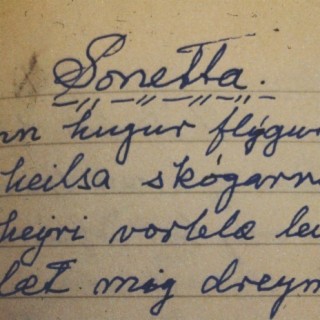 Sonetta.
nn hugur flýgur
heilsa skógarn
heyri vorblæ lei
læt mig dreym